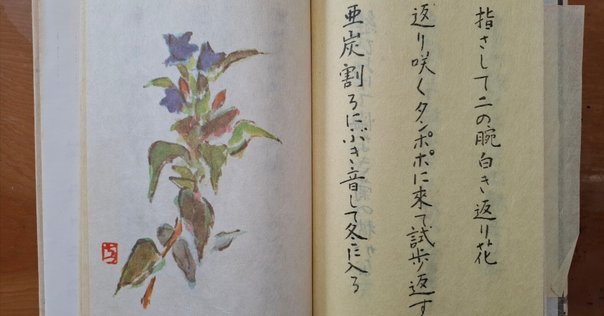 指さして二の腕白き返り花
返り咲くタンポポに来て試歩返す
亜炭割るにぶき音して冬に入る